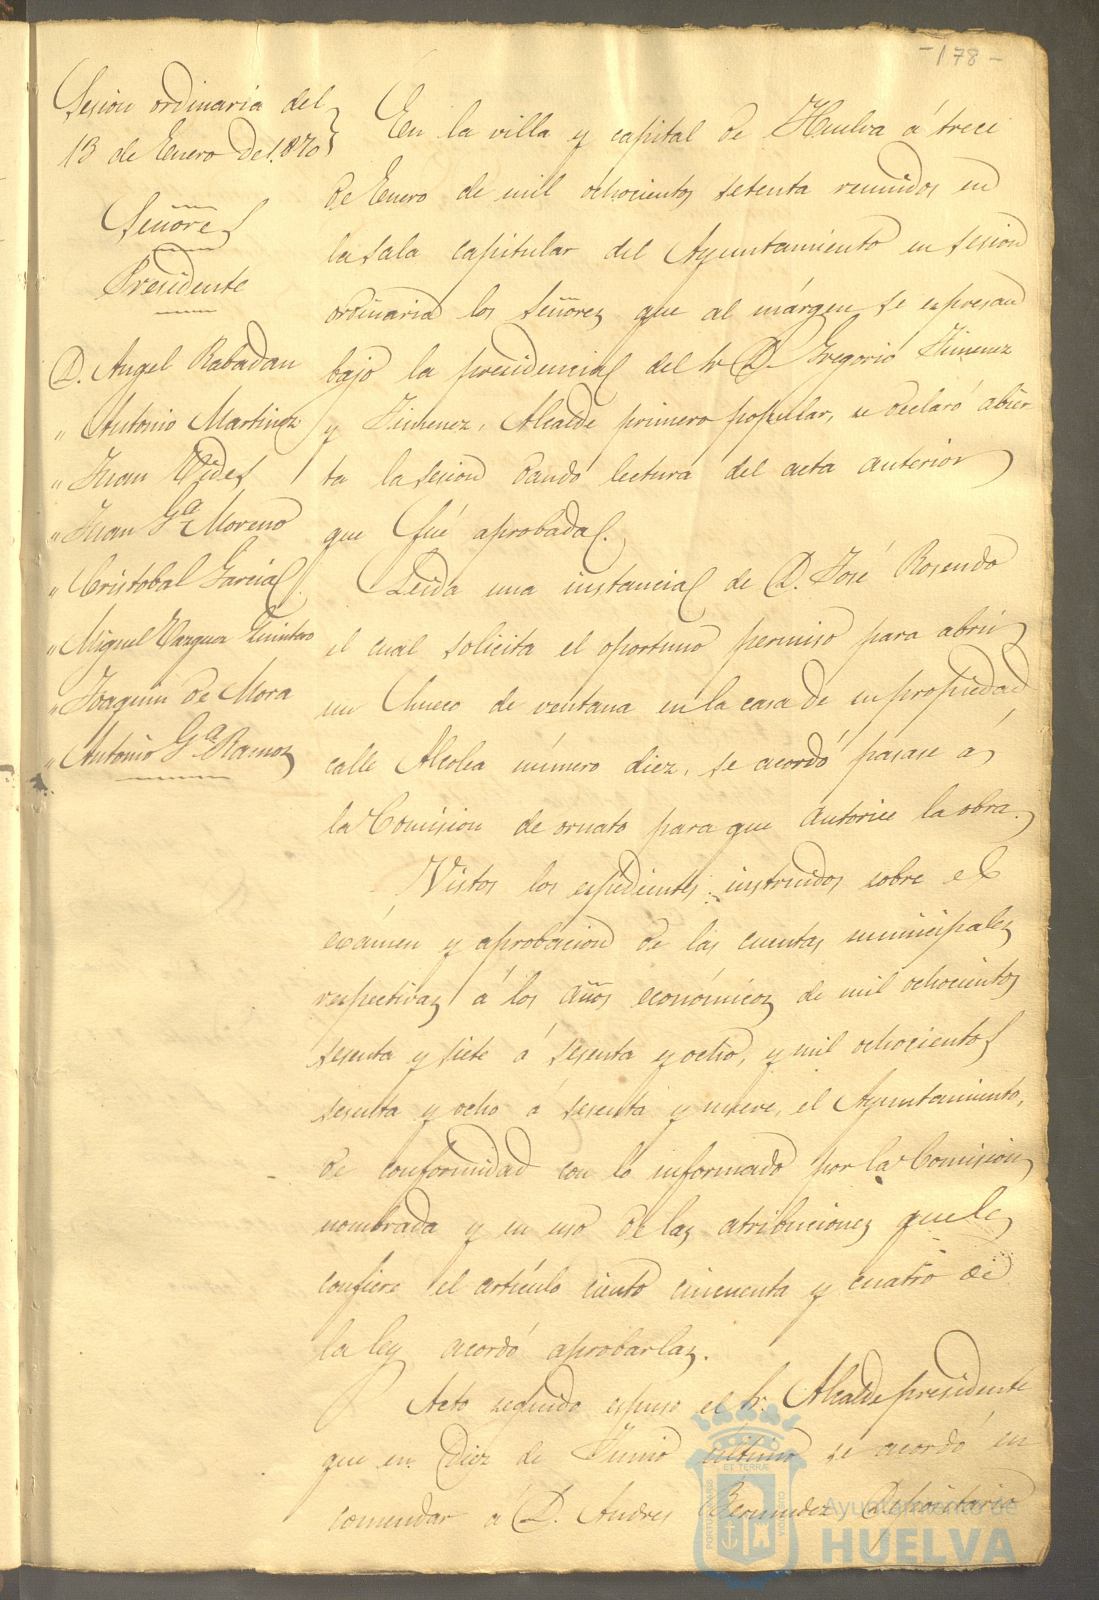 -178-
Sesion ordinaria del
13 de Enero de 1.870
Señores
Presidente
D. Angel Rabadan
" Antonio Martinez
" Juan
" Juan Gª Moreno
" Cristobal Garcia
" Miguel Vazquez Quintero
" Joaquin de Mora
" Antonio Gª Ramos
En la villa y capital de Huelva á trece
de Enero de mil ochocientos setenta reunidos en
la sala capitular del Ayuntamiento en sesion
ordinaria los Señores que al márgen se espresan
bajo la presidencia del Sr D. Gregorio Jimenez
y Jimenez, Alcalde primero popular, se declaró abier
ta la sesion dando lectura del acta anterior
que fué aprobada.
Leida una instancia de D. José Rosendo
el cual solicita el oportuno permiso para abrir
un hueco de ventana en la casa de su propiedad
calle Alcolea número diez, se acordó pasase á
la Comision de ornato para que autorice la obra.
Vistos los espedientes instruidos sobre el
exámen y aprobacion de las cuentas municipales
respectivas á los años económicos de mil ochocientos
sesenta y siete á sesenta y ocho, y mil ochocientos
sesenta y ocho á sesenta y nueve, el Ayuntamiento,
de conformidad con lo informado por la Comision
nombrada y en uso de las atribuciones que le
confiere el artículo ciento cincuenta y cuatro de
la ley acordó aprobarlas.
Acto seguido espuso el Sr. Alcalde presidente
que en Diez de Junio último se acordó en
comendar á D. Andres Bermudez Depositario
Ayuntamiento de
HUELVA